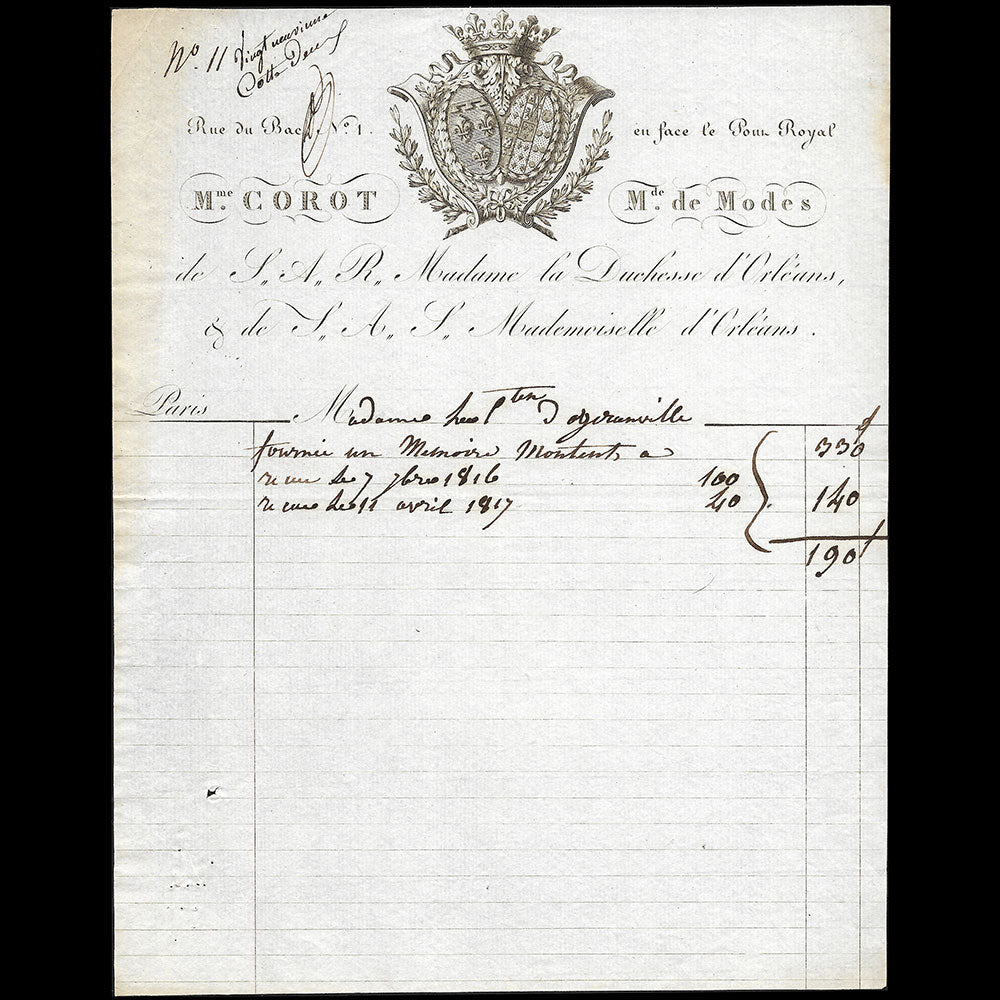 No 11 Vingt neuvieme
Cotte Deux
Rue du Bac, No. 1. en face le Pont Royal
Mme. COROT Mde. de Modes
de S,, A,, R,, Madame la Duchesse d'Orléans,
& de S,, A,, S,, Mademoiselle d'Orléans.
Paris Madame
fournie un Memoire Montent a 330f
recu le 7 7bre 1816 100
recu le 11 avril 1817 40 140
190f